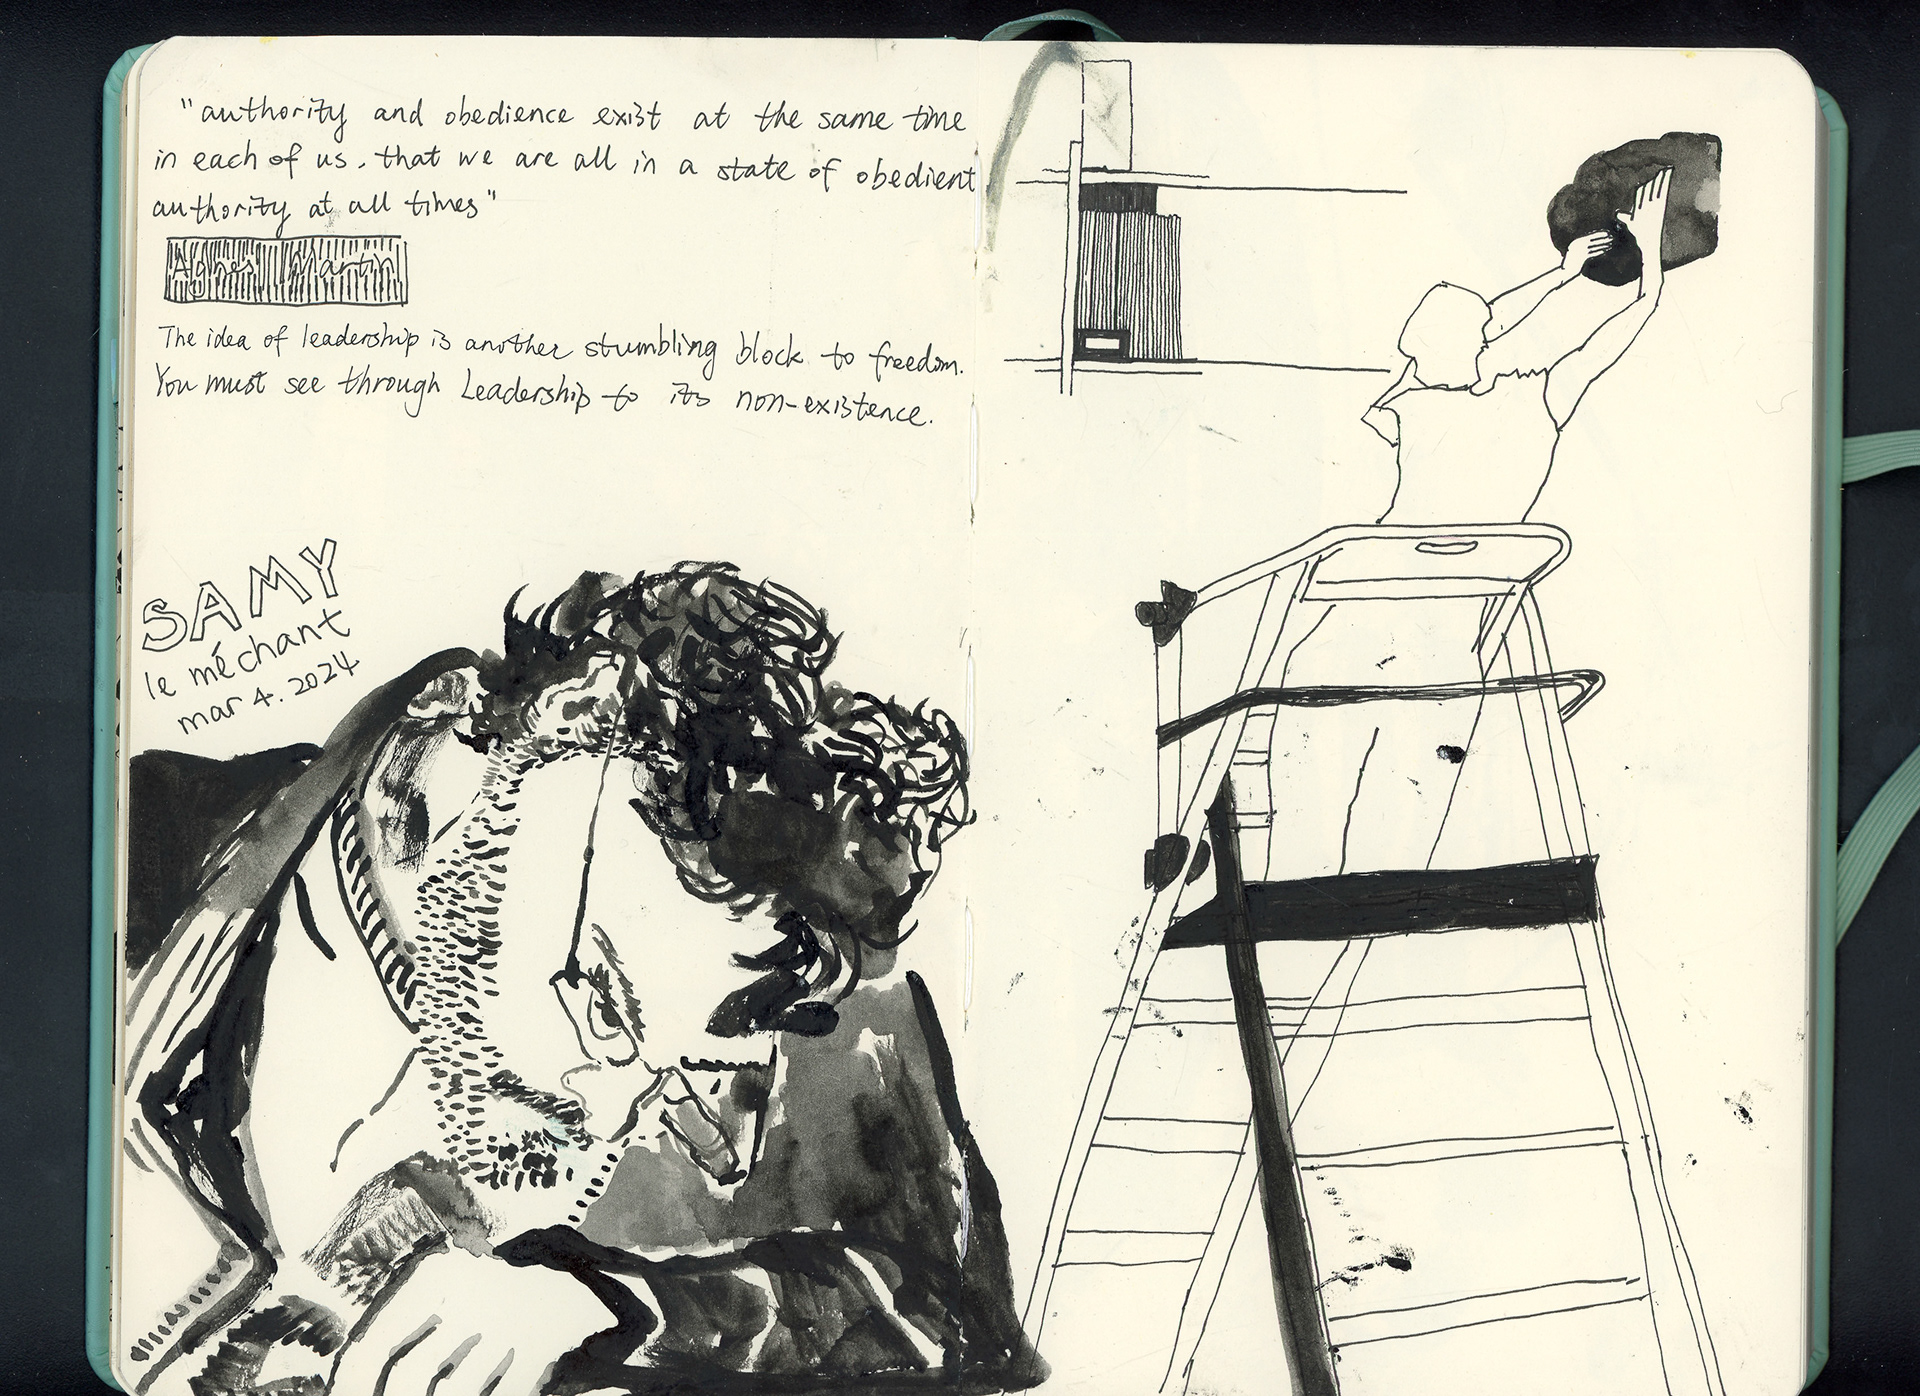 "authority and obedience exist at the same time
in each of us, that we are all in a state of obedient
authority at all times"
Agnes Martin
The idea of leadership is another stumbling block to freedom.
You must see through Leadership to its non-existence.
SAMY
le méchant
mar 4. 2024